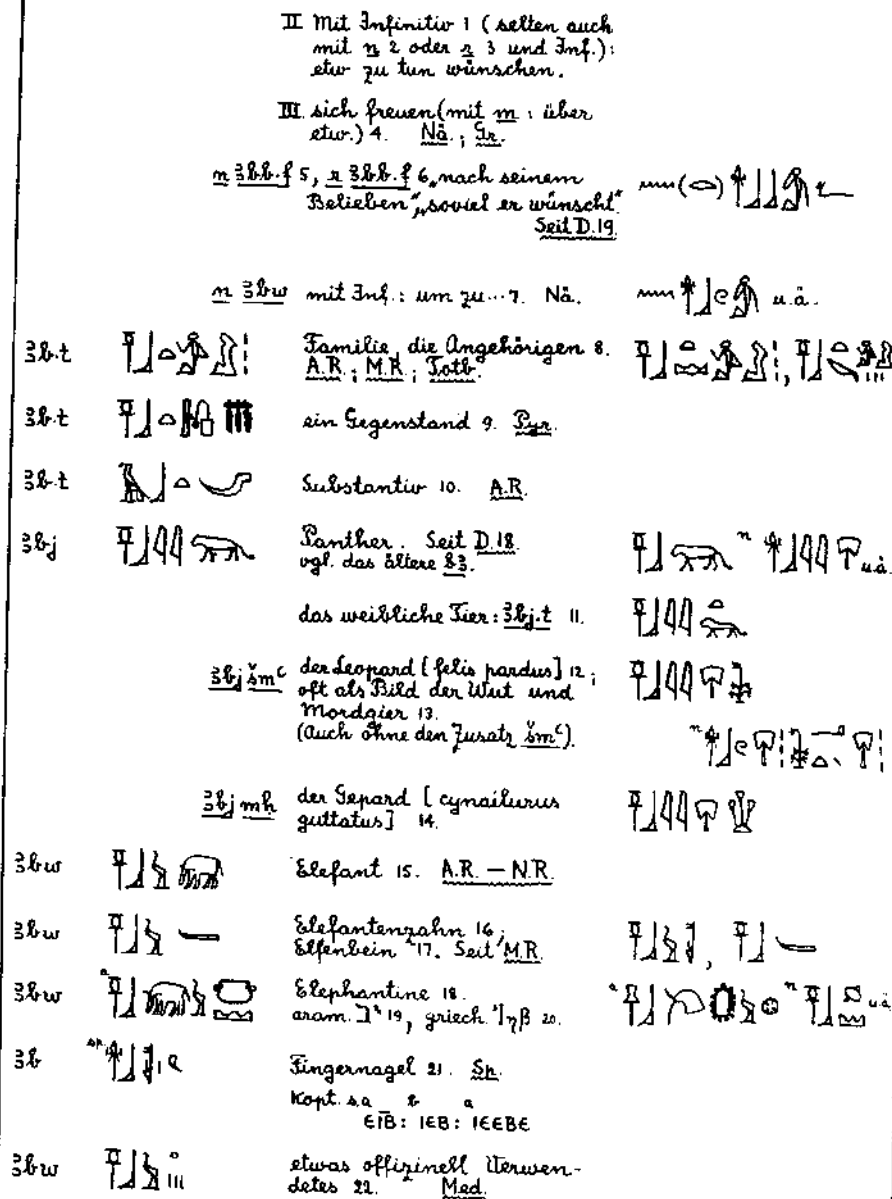 II Mit Infinitiv 1 (selten auch
mit n 2 oder r 3 und Inf.):
etw zu tun wünschen.
III. sich freuen (mit m : über
etw.) 4. Nä.; Gr.
n ꜣbb.f 5, r ꜣbb.f 6 „nach seinem
Belieben“, „soviel er wünscht“
Seit D.19.
n ꜣbw mit Inf.: um zu... 7. Nä. u.ä.
ꜣb.t Familie, die Angehörigen 8.
A.R.; M.R.; Totb.
ꜣb.t ein Gegenstand 9. Pyr.
ꜣb.t Substantiv 10. A.R.
ꜣbj Panther. Seit D.18. n u.ä.
vgl. das ältere bꜣ.
das weibliche Tier: ꜣbj.t 11.
ꜣbj šmꜥ der Leopard [felis pardus] 12;
oft als Bild der Wut und
Mordgier 13.
(Auch ohne den Zusatz šmꜥ). n
ꜣbj mḥ der Gepard [cynailurus
guttatus] 14.
ꜣbw Elefant 15. A.R. — N.R.
ꜣbw Elefantenzahn 16;
Elfenbein 17. Seit M.R.
ꜣbw a Elephantine 18. a n u.ä.
aram. 19, griech. ηβ 20.
ꜣb sp. Fingernagel 21. Sp.
Kopt. s.a b a
ⲉⲓⲃ: ⲓⲉⲃ: ⲓⲉⲉⲃⲉ
ꜣbw etwas offizinell Verwen-
detes 22. Med.